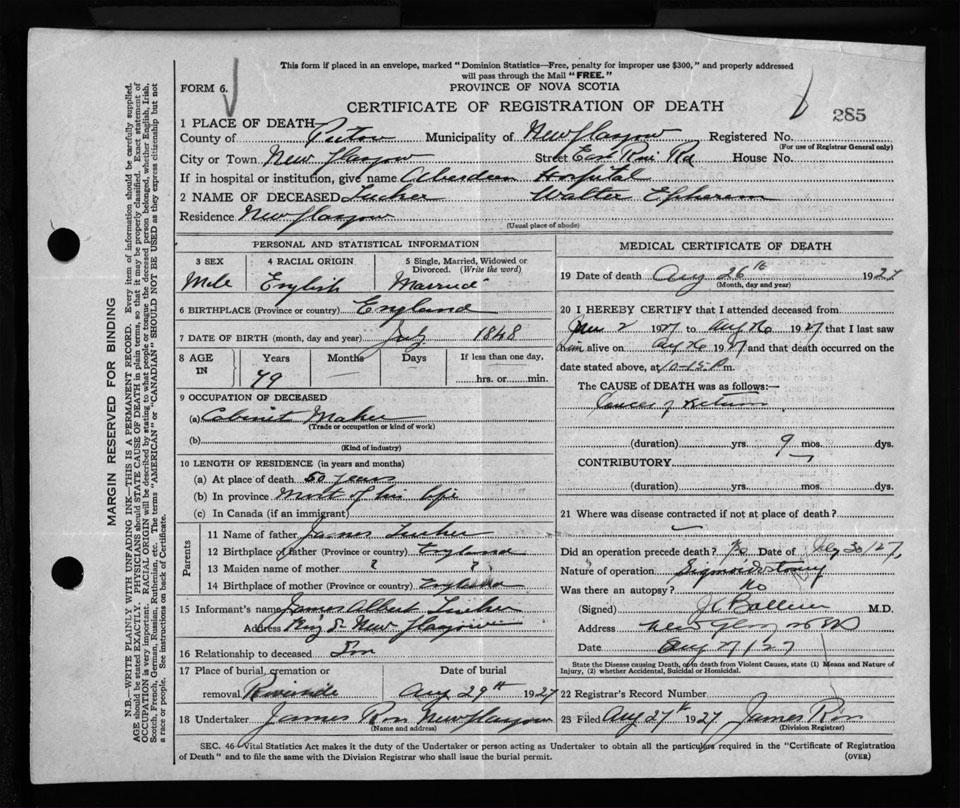 This form if placed in an envelope, marked "Dominion Statistics—Free, penalty for improper use $300," and properly addressed
will pass through the Mail "FREE."
FORM 6.
PROVINCE OF NOVA SCOTIA
CERTIFICATE OF REGISTRATION OF DEATH
285
1 PLACE OF DEATH—
County of Pictou Municipality of New Glasgow Registered No.
(For use of Registrar General only)
City or Town New Glasgow Street East Riv. Rd House No.
If in hospital or institution, give name Aberdeen Hospital
2 NAME OF DECEASED Tucker Walter Epherim
Residence New Glasgow
(Usual place of abode)
PERSONAL AND STATISTICAL INFORMATION
3 SEX 4 RACIAL ORIGIN 5 Single, Married, Widowed or
Divorced. (Write the word)
Male English Married
6 BIRTHPLACE (Province or country) England
7 DATE OF BIRTH (month, day and year) July 1848
8 AGE IN Years Months Days If less than one day,
79 hrs. or min.
9 OCCUPATION OF DECEASED
(a) Cabinet Maker
(Trade or occupation or kind of work)
(b)
(Kind of industry)
10 LENGTH OF RESIDENCE (in years and months)
(a) At place of death 50 years
(b) In province Most of his life
(c) In Canada (if an immigrant)
Parents
11 Name of father James Tucker
12 Birthplace of father (Province or country) England
13 Maiden name of mother ? ?
14 Birthplace of mother (Province or country) England
15 Informant's name James Albert Tucker
Address King St New Glasgow
16 Relationship to deceased Son
17 Place of burial, cremation or Date of burial
removal Riverside Aug 29th 1927
18 Undertaker James Ross New Glasgow
(Name and address)
MEDICAL CERTIFICATE OF DEATH
19 Date of death Aug 26th 1927
(Month, day and year)
20 I HEREBY CERTIFY that I attended deceased from
2 1927 to Aug 26 1927 that I last saw
him alive on Aug 26 1927 and that death occurred on the
date stated above, at 10-15 P.m.
The CAUSE OF DEATH was as follows:—
Cancer of
(duration) yrs. 9 mos. dys.
CONTRIBUTORY
(duration) yrs. mos. dys.
21 Where was disease contracted if not at place of death?
Did an operation precede death? Date of July 30/27
Nature of operation
Was there an autopsy? No
(Signed) M.D.
Address New Glasgow N S
Date Aug 27/27
State the Disease causing Death, or in death from Violent Causes, state (1) Means and Nature of
Injury, (2) whether Accidental, Suicidal or Homicidal.
22 Registrar's Record Number
23 Filed Aug 27th 1927 James Ross
(Division Registrar)
SEC. 46—Vital Statistics Act makes it the duty of the Undertaker or person acting as Undertaker to obtain all the particulars required in the "Certificate of Registration
of Death" and to file the same with the Division Registrar who shall issue the burial permit.
(OVER)
MARGIN RESERVED FOR BINDING
N.B.—WRITE PLAINLY WITH UNFADING INK—THIS IS A PERMANENT RECORD. Every item of information should be carefully supplied.
AGE should be stated EXACTLY. PHYSICIANS should STATE CAUSE OF DEATH in plain terms, so that it may be properly classified. Exact statement of
OCCUPATION is very important. RACIAL ORIGIN will be described by stating to what people or tongue the deceased person belonged, whether English, Irish,
Scotch, French, German, Russian, Ruthenian, etc. The terms "AMERICAN" or "CANADIAN" SHOULD NOT BE USED as they express citizenship but not
a race or people. See instructions on back of Certificate.